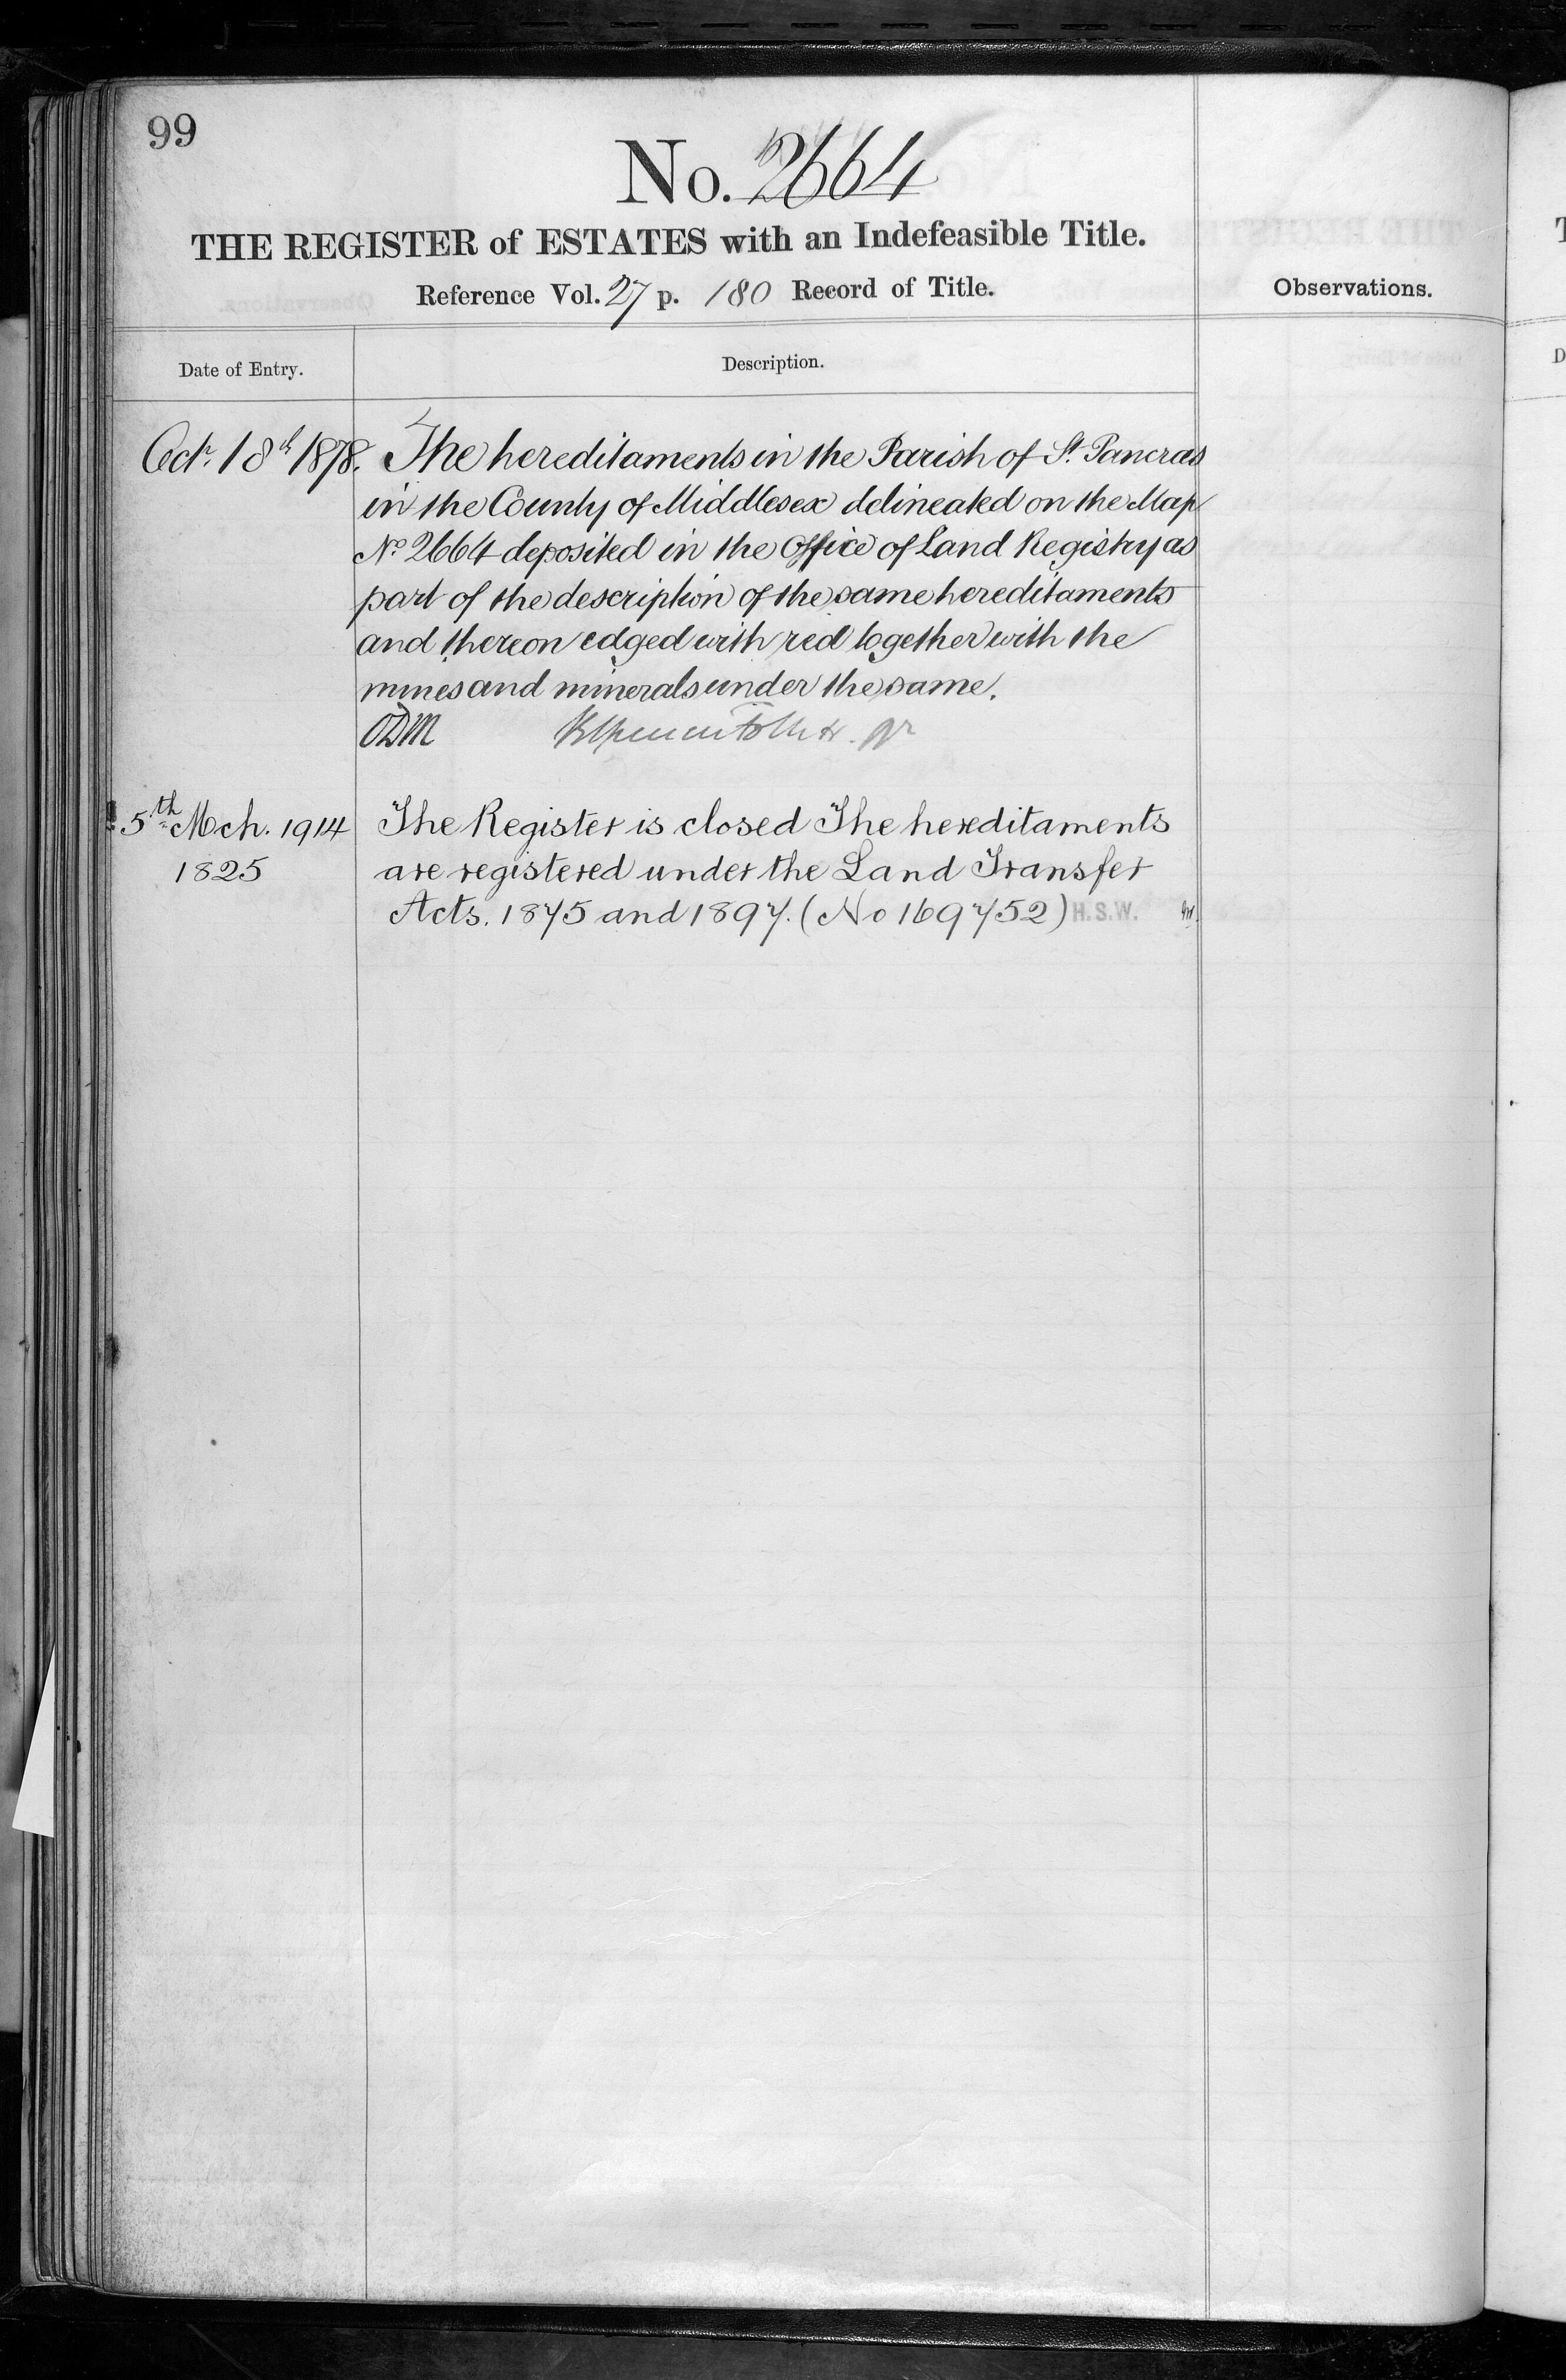 99
No. 2664
THE REGISTER of ESTATES with an Indefeasible Title.
Reference Vol. 27 p. 180 Record of Title.
Observations.
Date of Entry.
Description.
Oct. 18th 1878. The hereditaments in the Parish of St. Pancras
in the County of Middlesex delineated on the Map
No 2664 deposited in the Office of Land Registry as
part of the description of the same hereditaments
and thereon edged with red together with the
mines and minerals under the same.
ODM
5th Mch. 1914 The Register is closed The hereditaments
1825 are registered under the Land Transfer
Acts. 1875 and 1897. (No 169752) H.S.W.